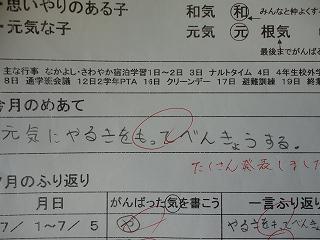 ・思いやりのある子 和気 和 ←みんなと仲よくする
・元気な子 元気 元 根気
最後までがんばる
主な行事 なかよし・さわやか宿泊学習1日～2日 3日 ナルトタイム 4日 4年生校外学
8日 通学班会議 12日2学年PTA 16日 クリーンデー 17日 避難訓練 19日 終業
今月のめあて
元気にやるきをもってべんきょうする。
たくさん発表しました
7月のふり返り
月日 がんばった気を書こう 一言ふり返り
7/1～7/5 や やるきをもってべんき